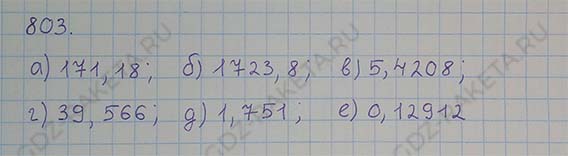 803.
а) 171,18; б) 1723,8; в) 5,4208;
г) 39,566; д) 1,751; е) 0,12912
GDZ-RAKETA.RU